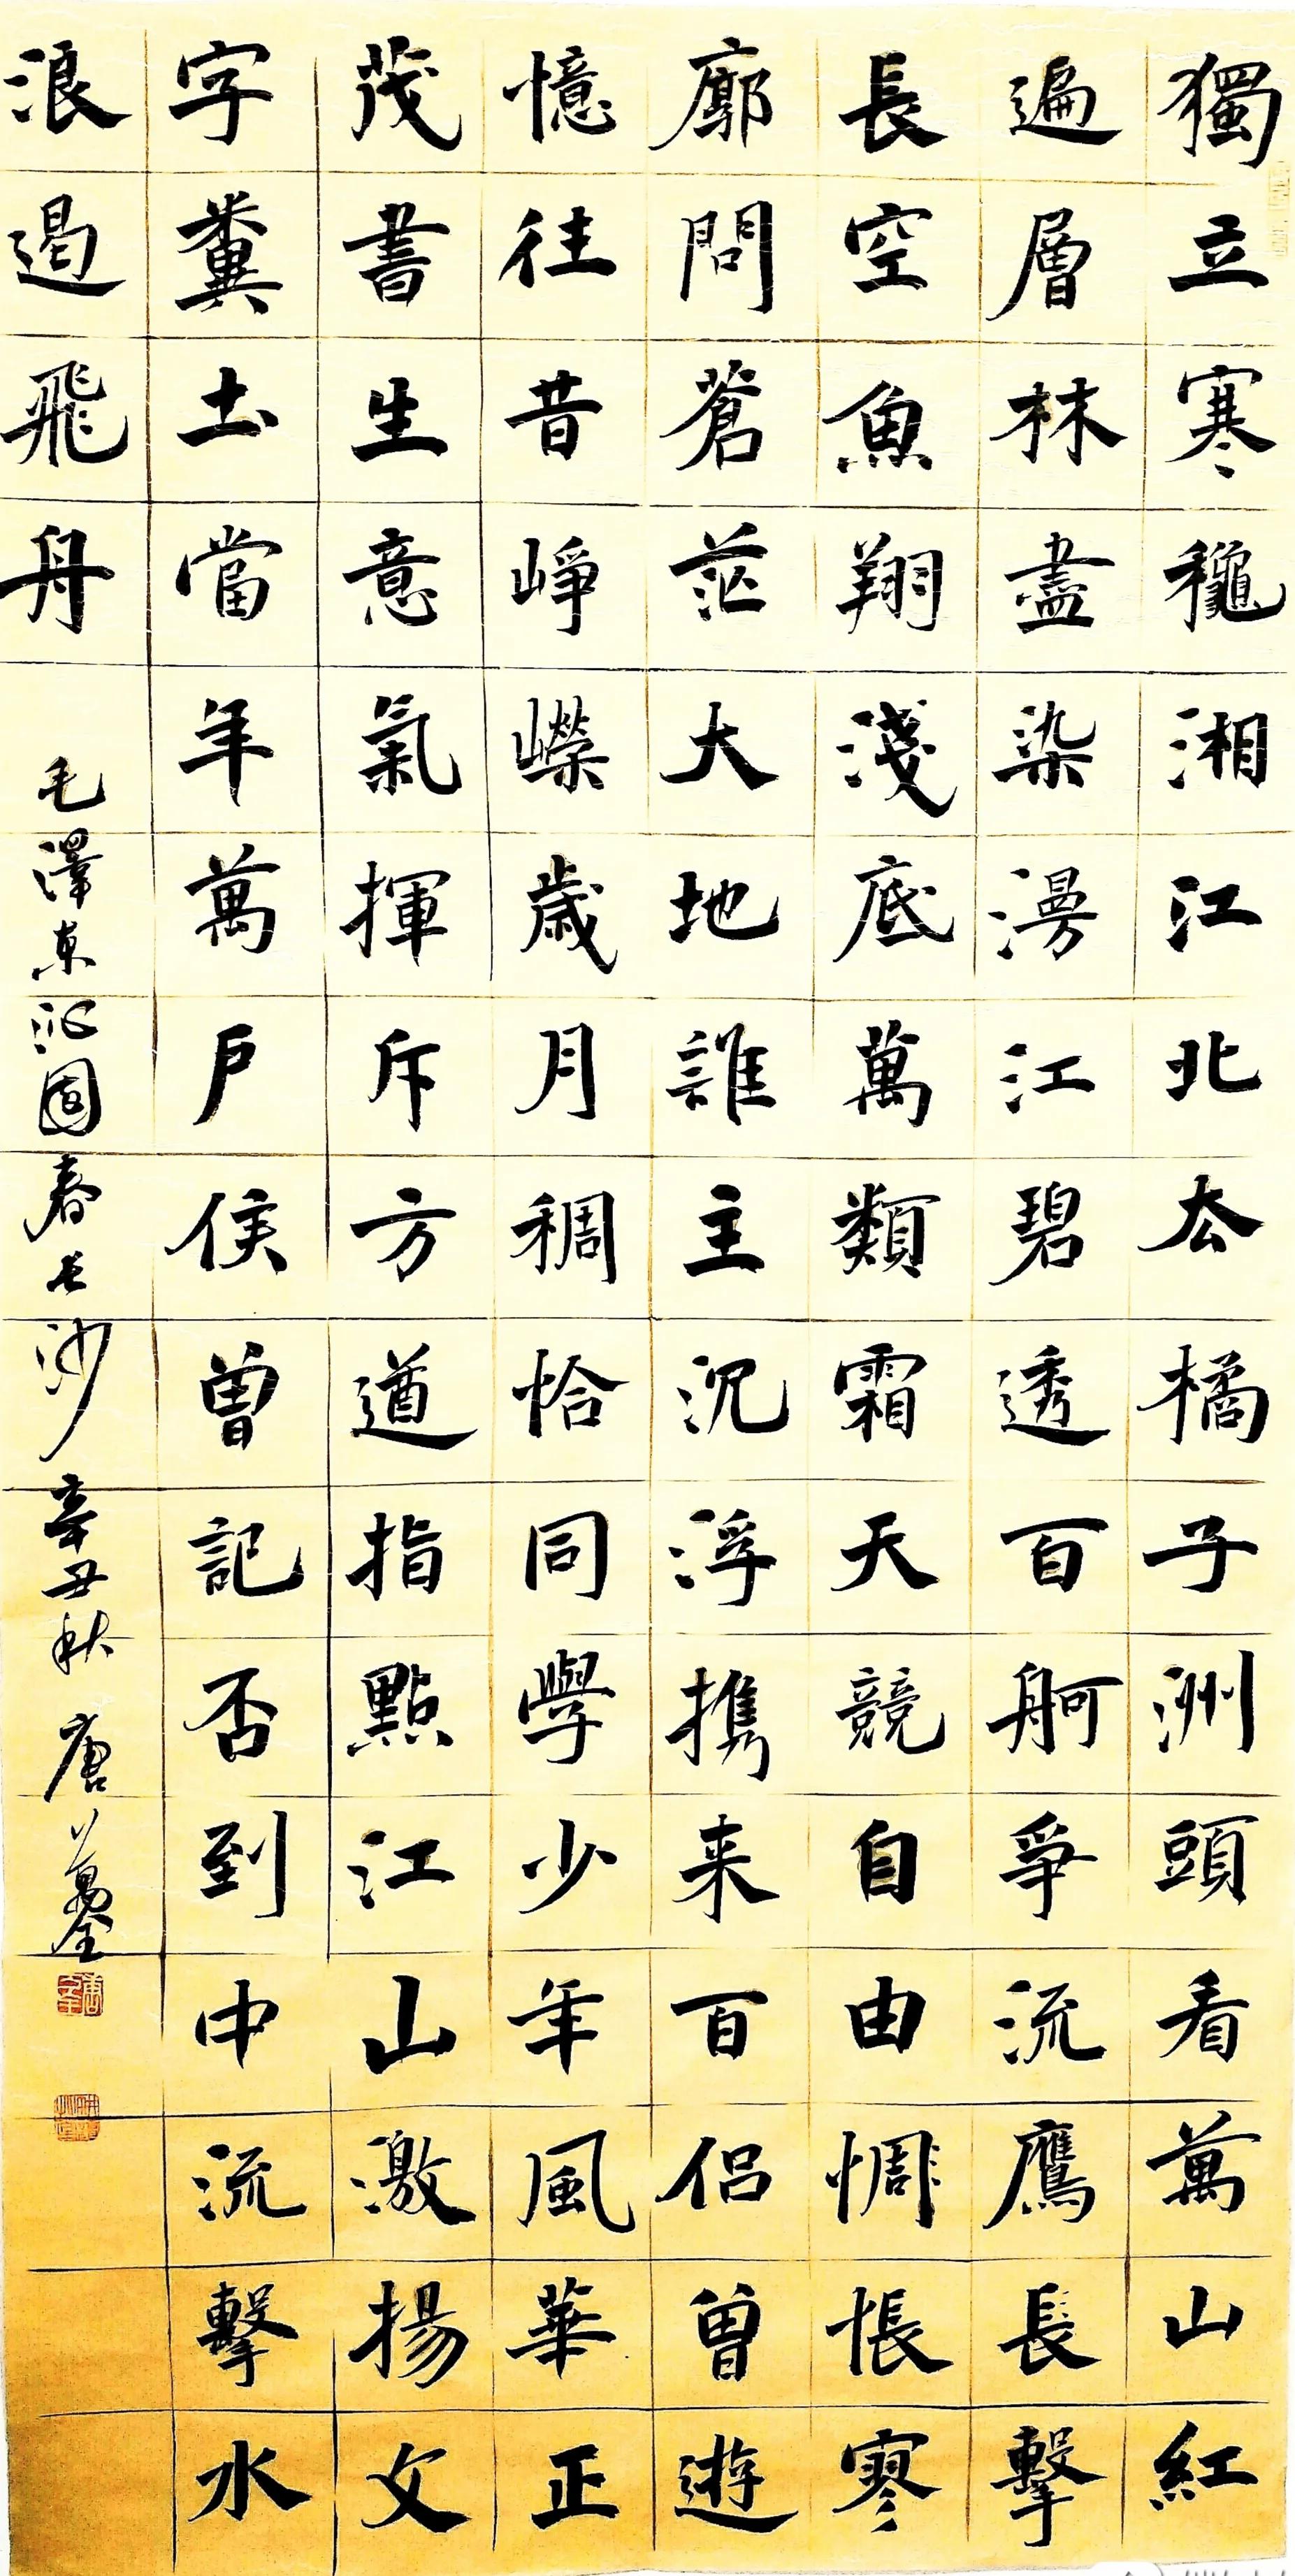 獨立寒龝湘江北厺橘子洲頭看萬山紅
遍層林盡染漫江碧透百舸爭流鷹長擊
長空魚翔淺底萬類霜天競自由惆悵寥
廓問蒼茫大地誰主沉浮攜来百侣曾遊
憶往昔崢嶸歲月稠恰同學少年風華正
茂書生意氣揮斥方遒指點江山激揚文
字糞土當年萬户侯曾記否到中流擊水
浪遏飛舟
毛澤東沁園春長沙辛丑秋唐